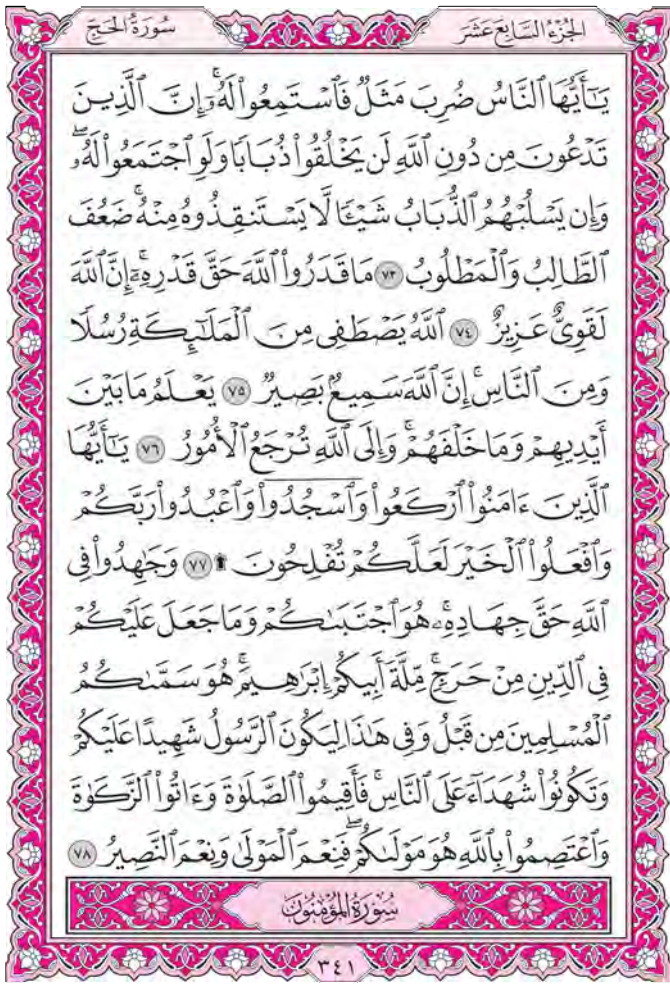 سُورَةُ الحَجّ
الجُزْءُ السَّابِعَ عَشَرَ
يَٰٓأَيُّهَا ٱلنَّاسُ ضُرِبَ مَثَلٌ فَٱسْتَمِعُوا۟ لَهُۥٓ ۚ إِنَّ ٱلَّذِينَ
تَدْعُونَ مِن دُونِ ٱللَّهِ لَن يَخْلُقُوا۟ ذُبَابًا وَلَوِ ٱجْتَمَعُوا۟ لَهُۥ ۖ
وَإِن يَسْلُبْهُمُ ٱلذُّبَابُ شَيْـًٔا لَّا يَسْتَنقِذُوهُ مِنْهُ ۚ ضَعُفَ
ٱلطَّالِبُ وَٱلْمَطْلُوبُ ٧٣ مَا قَدَرُوا۟ ٱللَّهَ حَقَّ قَدْرِهِۦٓ ۗ إِنَّ ٱللَّهَ
لَقَوِىٌّ عَزِيزٌ ٧٤ ٱللَّهُ يَصْطَفِى مِنَ ٱلْمَلَٰٓئِكَةِ رُسُلًا
وَمِنَ ٱلنَّاسِ ۚ إِنَّ ٱللَّهَ سَمِيعٌۢ بَصِيرٌ ٧٥ يَعْلَمُ مَا بَيْنَ
أَيْدِيهِمْ وَمَا خَلْفَهُمْ ۗ وَإِلَى ٱللَّهِ تُرْجَعُ ٱلْأُمُورُ ٧٦ يَٰٓأَيُّهَا
ٱلَّذِينَ ءَامَنُوا۟ ٱرْكَعُوا۟ وَٱسْجُدُوا۟ وَٱعْبُدُوا۟ رَبَّكُمْ
وَٱفْعَلُوا۟ ٱلْخَيْرَ لَعَلَّكُمْ تُفْلِحُونَ ۩ ٧٧ وَجَٰهِدُوا۟ فِى
ٱللَّهِ حَقَّ جِهَادِهِۦ ۚ هُوَ ٱجْتَبَىٰكُمْ وَمَا جَعَلَ عَلَيْكُمْ
فِى ٱلدِّينِ مِنْ حَرَجٍ ۚ مِّلَّةَ أَبِيكُمْ إِبْرَٰهِيمَ ۚ هُوَ سَمَّىٰكُمُ
ٱلْمُسْلِمِينَ مِن قَبْلُ وَفِى هَٰذَا لِيَكُونَ ٱلرَّسُولُ شَهِيدًا عَلَيْكُمْ
وَتَكُونُوا۟ شُهَدَآءَ عَلَى ٱلنَّاسِ ۚ فَأَقِيمُوا۟ ٱلصَّلَوٰةَ وَءَاتُوا۟ ٱلزَّكَوٰةَ
وَٱعْتَصِمُوا۟ بِٱللَّهِ هُوَ مَوْلَىٰكُمْ ۖ فَنِعْمَ ٱلْمَوْلَىٰ وَنِعْمَ ٱلنَّصِيرُ ٧٨
سُورَةُ المُؤْمِنُونَ
٣٤١